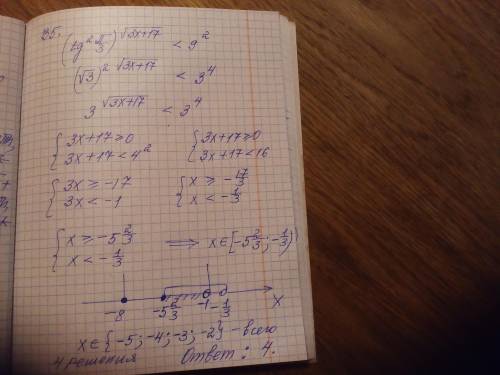 35.
(tg² π/3)^√(3x+17) < 9²
(√3)^2 √(3x+17) < 3⁴
3^√(3x+17) < 3⁴
{ 3x+17 ≥ 0 { 3x+17 ≥ 0
{ 3x+17 < 4² { 3x+17 < 16
{ 3x ≥ -17 { x ≥ -17/3
{ 3x < -1 { x < -1/3
{ x ≥ -5 2/3 ⟹ x∈[-5 2/3; -1/3)
{ x < -1/3
-8 -5 2/3 -1 -1/3 x
x∈{-5; -4; -3; -2} - всего
4 решения Ответ: 4.